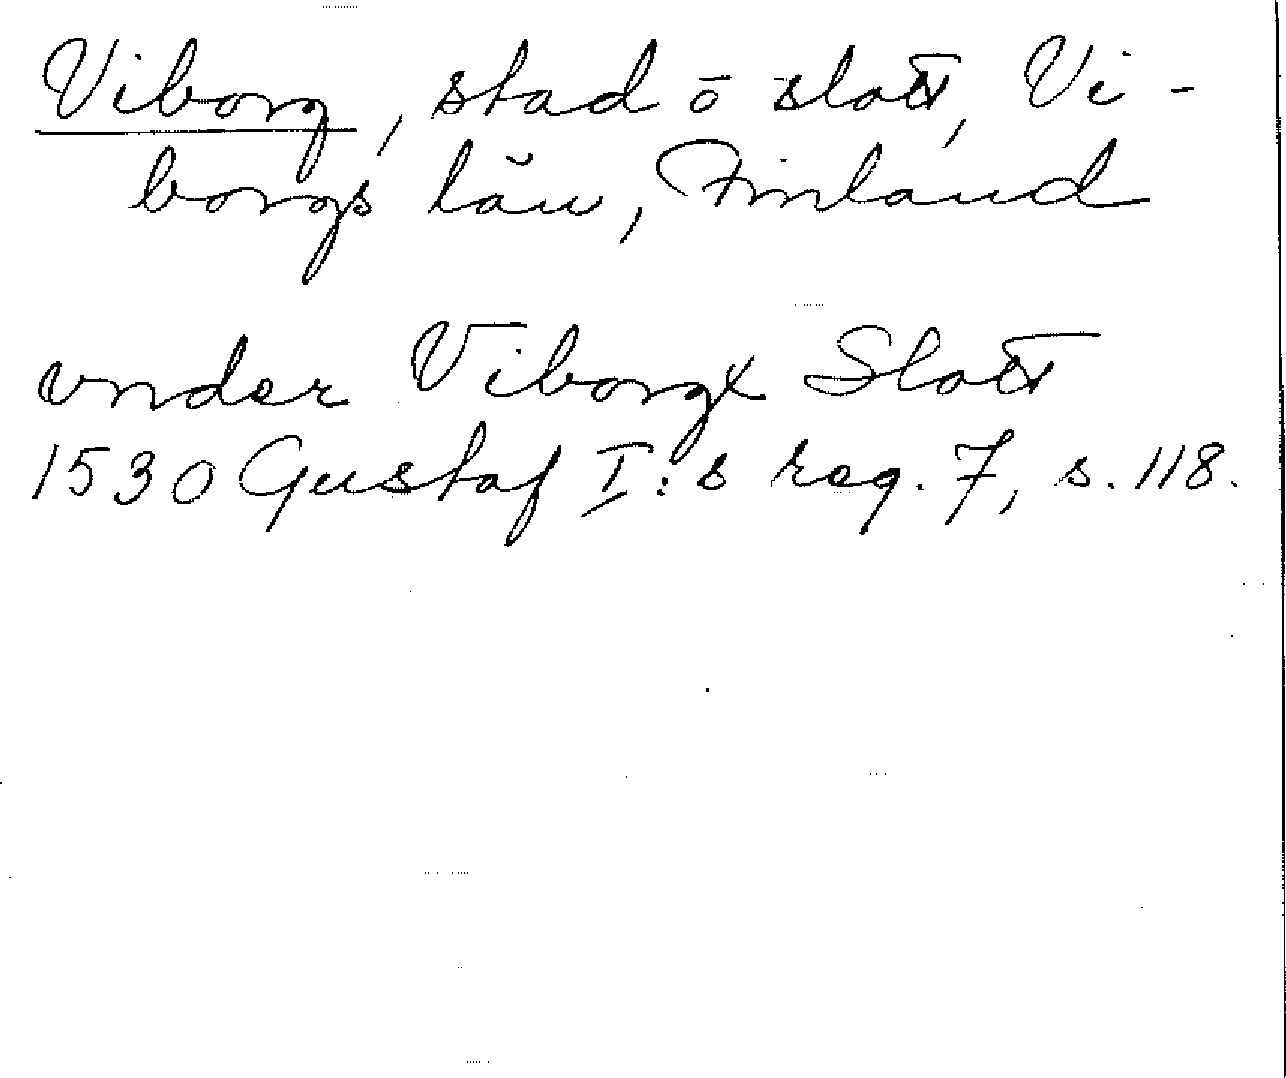 Viborg, stad ō slott, Vi-
borgs län, Finland
vnder Viborgx Slott
1530 Gustaf I:s reg. 7, s. 118.